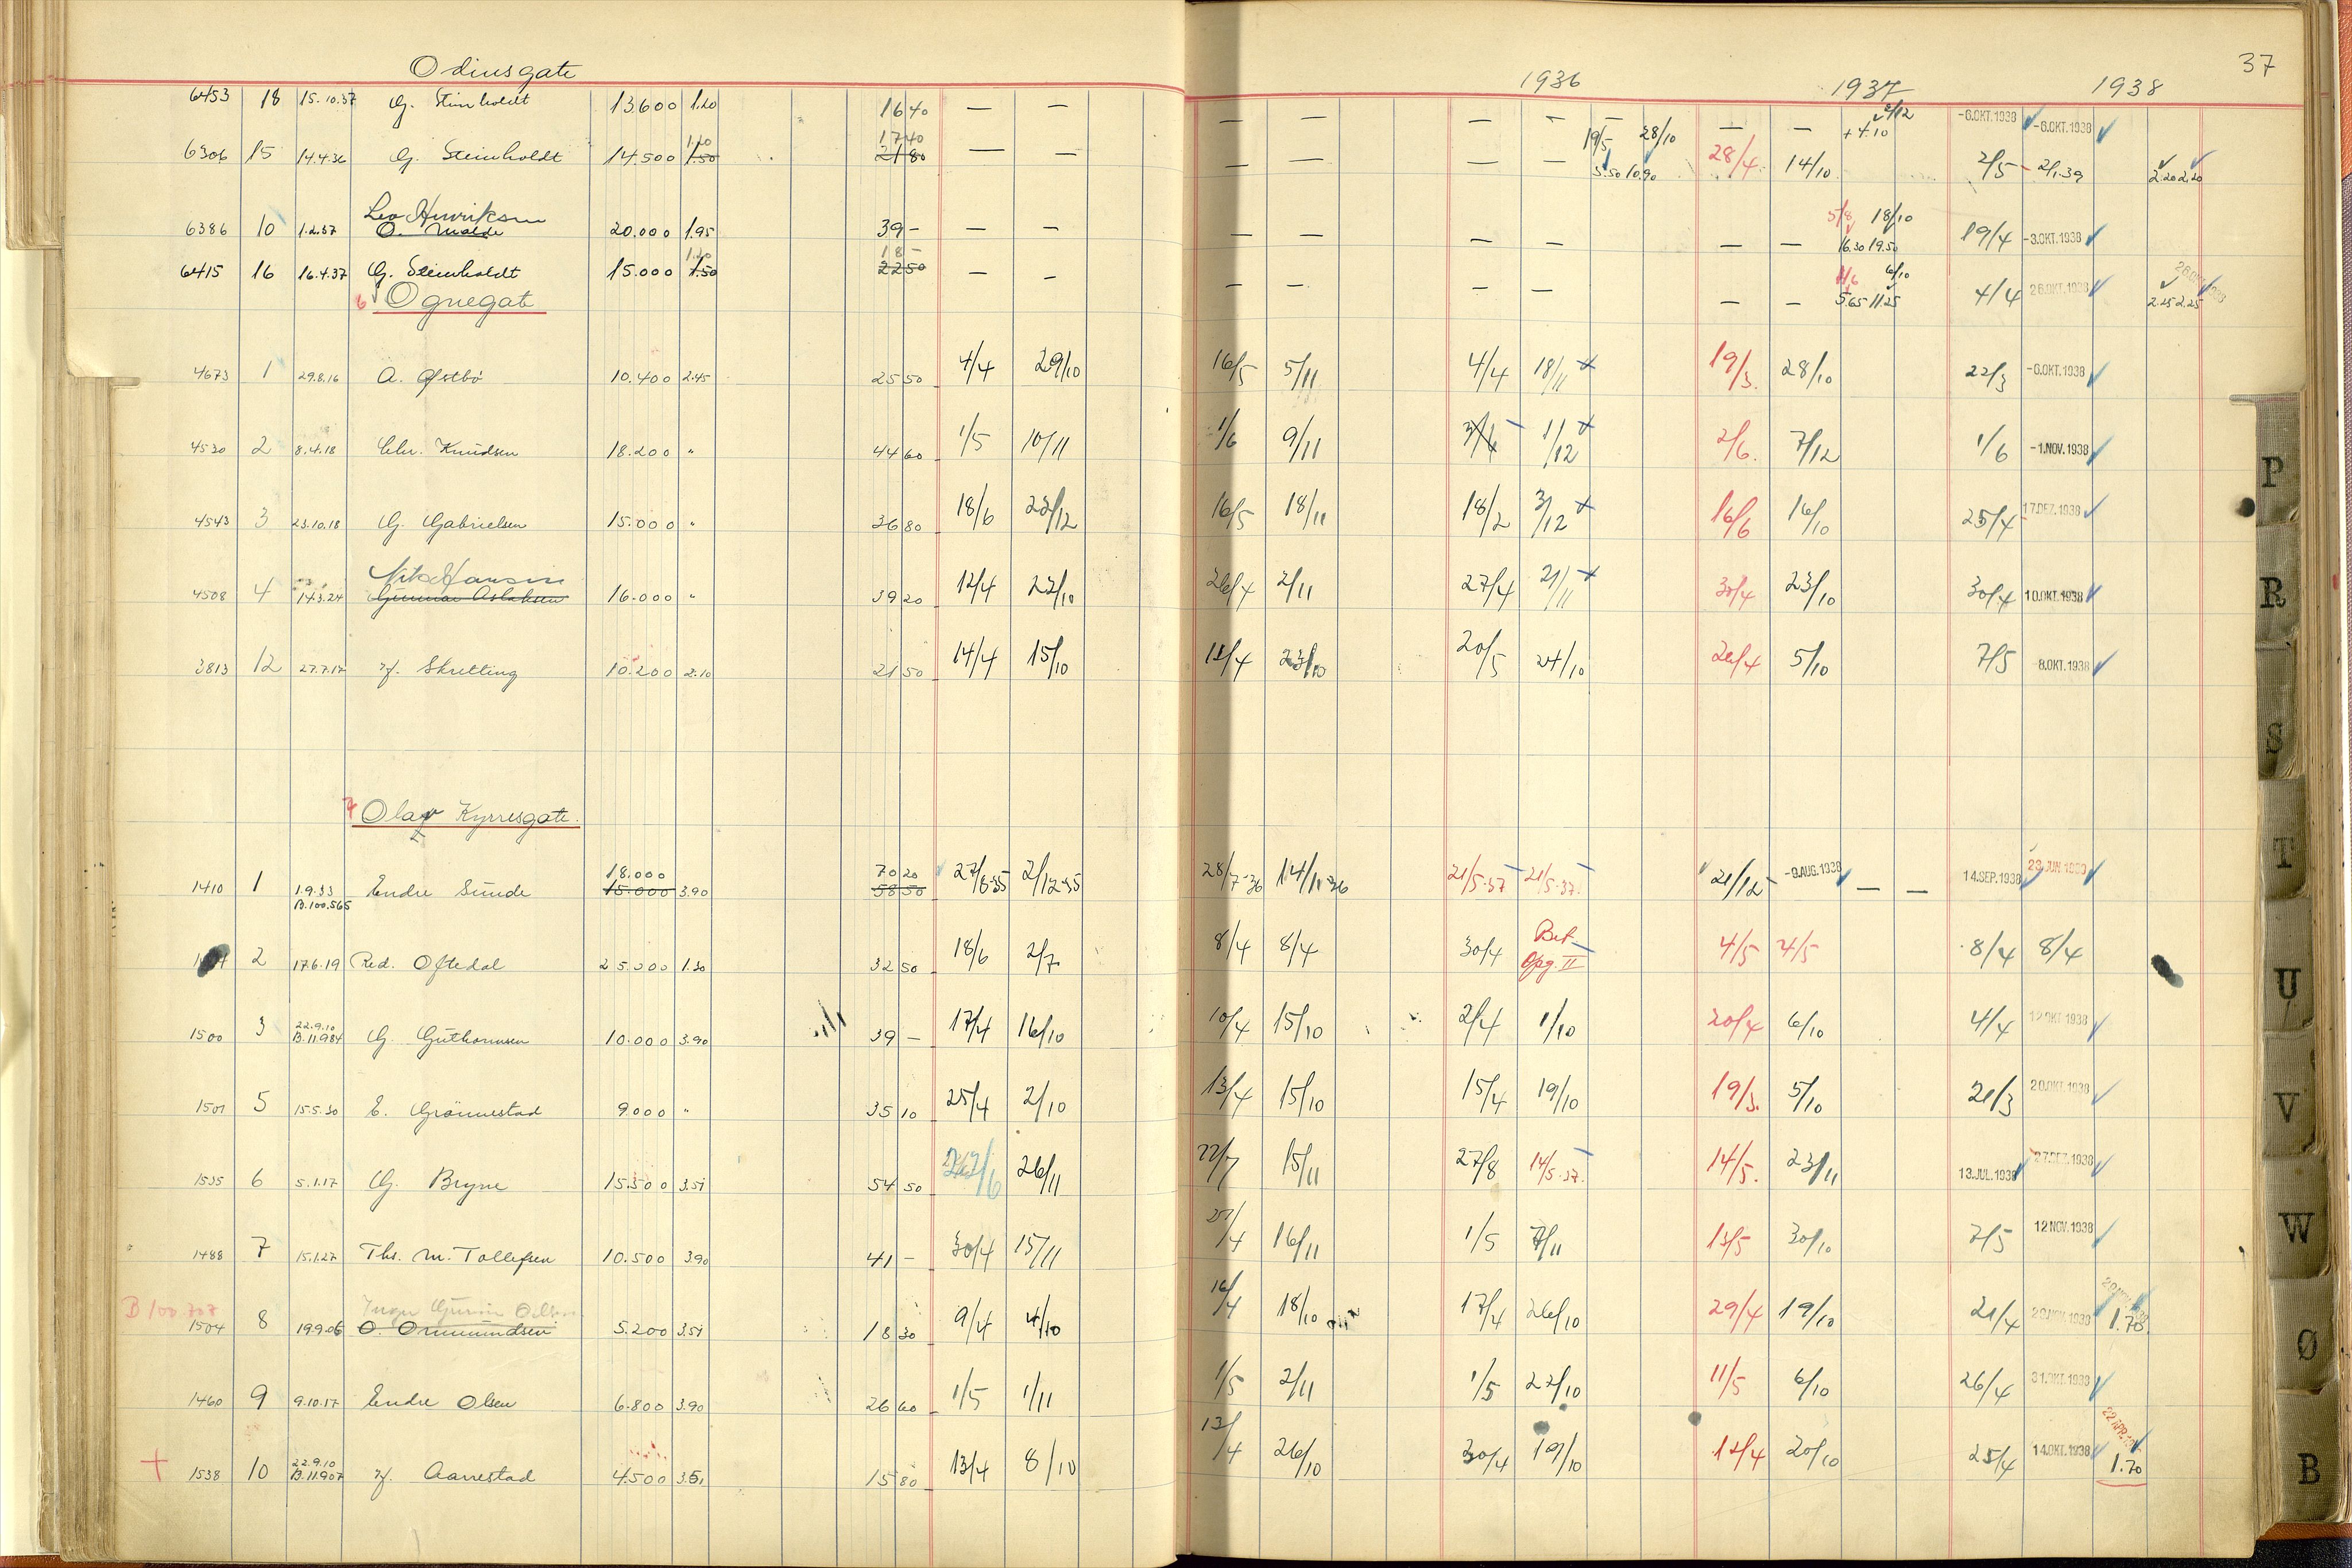 Odinsgate 1936 1937 1938 37
6453 18 15.10.37 G. Steinholdt 13600 1.20 16 40 — — — — — — — — — +4.10 2/12 -6.OKT.1938 -6.OKT.1938
17 40 1.20 19/5 28/10
6306 15 14.4.36 G. Steinholdt 14.500 1.50 21 80 — — — — — — 5.50 10.90 28/4 14/10 2/5 2/1.39 2.20 2.20
Leo Henriksen 5/8 18/10
6386 10 1.2.37 O. Molde 20.000 1.95 39 – — — — — — — — — 16.30 19.50 19/4 -3.OKT.1938
1.20 18 – 11/6 6/10
6415 16 16.4.37 G. Steinholdt 15.000 1.50 22 50 — — — — — — — — 5.65 11.25 4/4 26.OKT.1938 2.25 2.25
6 Ognegate
4673 1 29.8.16 A. Østbö 10.400 2.45 25 50 4/4 29/10 16/5 5/11 4/4 18/11 19/3. 28/10 22/3 -6.OKT.1938
4530 2 8.4.18 Chr. Knudsen 18.200 " 44 60 1/5 10/11 1/6 9/11 1/12 2/6. 7/12 1/6 -1.NOV.1938
4543 3 23.10.18 G. Gabrielsen 15.000 " 36 80 18/6 23/12 16/5 18/11 18/2 3/12 16/6 16/10 25/4 17.DEZ.1938
Nils Hansen
4508 4 14.3.24 Gunnar Aslaksen 16.000 " 39 20 12/4 22/10 26/4 2/11 27/4 2/11 30/4 23/10 30/4 10.OKT.1938
3813 12 27.7.17 Skretting 10.200 2.10 21 50 14/4 15/10 11/4 23/10 20/5 24/10 26/4 5/10 7/5 -8.OKT.1938
7 Olav Kyrresgate.
18.000 70 20
1410 1 1.9.33 Endre Sunde 15.000 3.90 58 50 27/8-35 2/12-35 28/7-36 14/11-36 21/5-37 21/5-37. 21/12 -9.AUG.1938 — — 14.SEP.1938
B.100.565
2 17.6.19 Red. Oftedal 25.000 1.30 32 50 18/6 2/7 8/4 8/4 30/4 Bet. Opg. II 4/5 4/5 8/4 8/4
22.9.10
1500 3 B.11.984 G. Guthormsen 10.000 3.90 39 – 17/4 16/10 10/4 15/10 2/4 1/10 20/4 6/10 4/4 12.OKT.1938
1501 5 15.5.30 E. Grönnestad 9000 " 35 10 25/4 2/10 13/4 15/10 15/4 19/10 19/3. 5/10 21/3 20.OKT.1938
1535 6 5.1.17 G. Bryne 15.500 3.51 54 50 26/11 22/7 15/11 27/8 14/5-37. 14/5. 23/11 13.JUL.1938 27.DEZ.1938
1488 7 15.1.27 Ths. M. Tollefsen 10.500 3.90 41 – 30/4 15/11 27/4 16/11 1/5 7/11 13/5 30/10 7/5 12 NOV.1938
B 100.707
1504 8 19.9.06 O. Ommundsen 5.200 3.51 18 30 9/4 4/10 16/4 18/10 17/4 26/10 29/4 19/10 21/4 29.NOV.1938 1.70
1460 9 9.10.17 Endre Olsen 6.800 3.90 26 60 1/5 1/11 1/5 2/11 1/5 22/10 11/5 6/10 26/4 31.OKT.1938
22.9.10
+ 1538 10 B.11.907 Aarrestad 4.500 3.51 15 80 13/4 8/10 13/4 26/10 30/4 19/10 12/4 20/10 25/4 14.OKT.1938 1.70
P
R
S
T
U
V
W
Ø
B